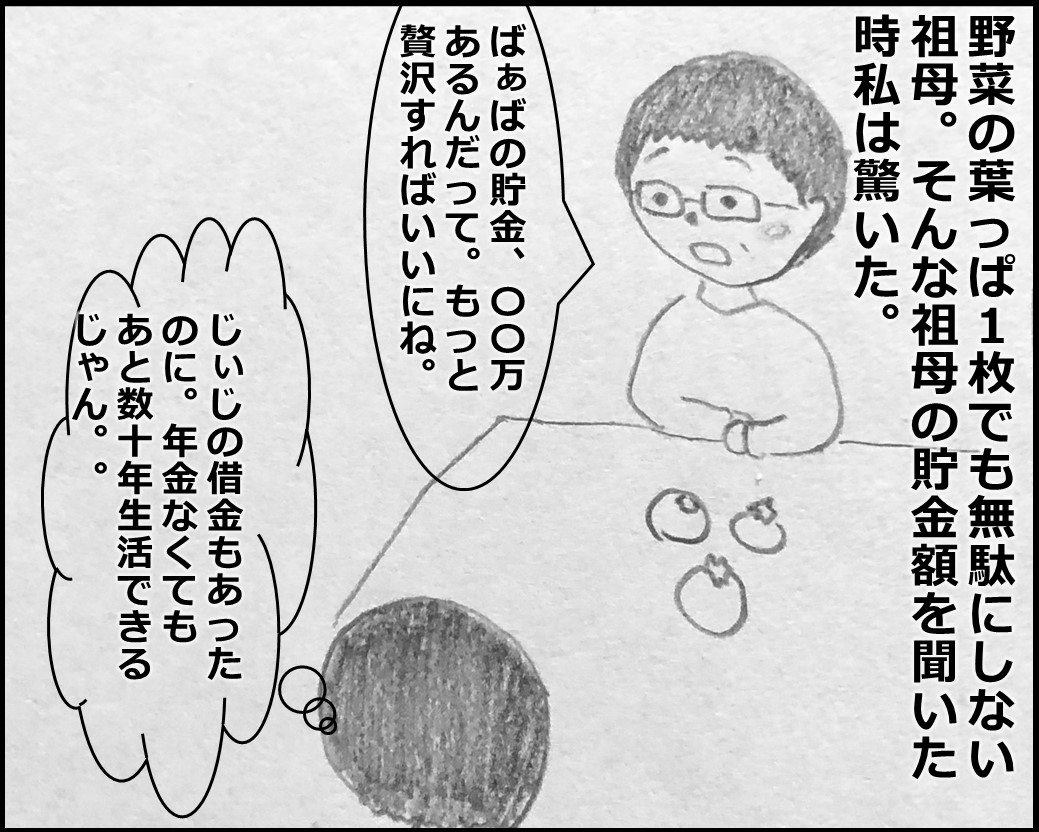 野菜の葉っぱ1枚でも無駄にしない
祖母。そんな祖母の貯金額を聞いた
時私は驚いた。
ばぁばの貯金、〇〇万
あるんだって。もっと
贅沢すればいいにね。
じぃじの借金もあった
のに。年金なくても
あと数十年生活できる
じゃん。。